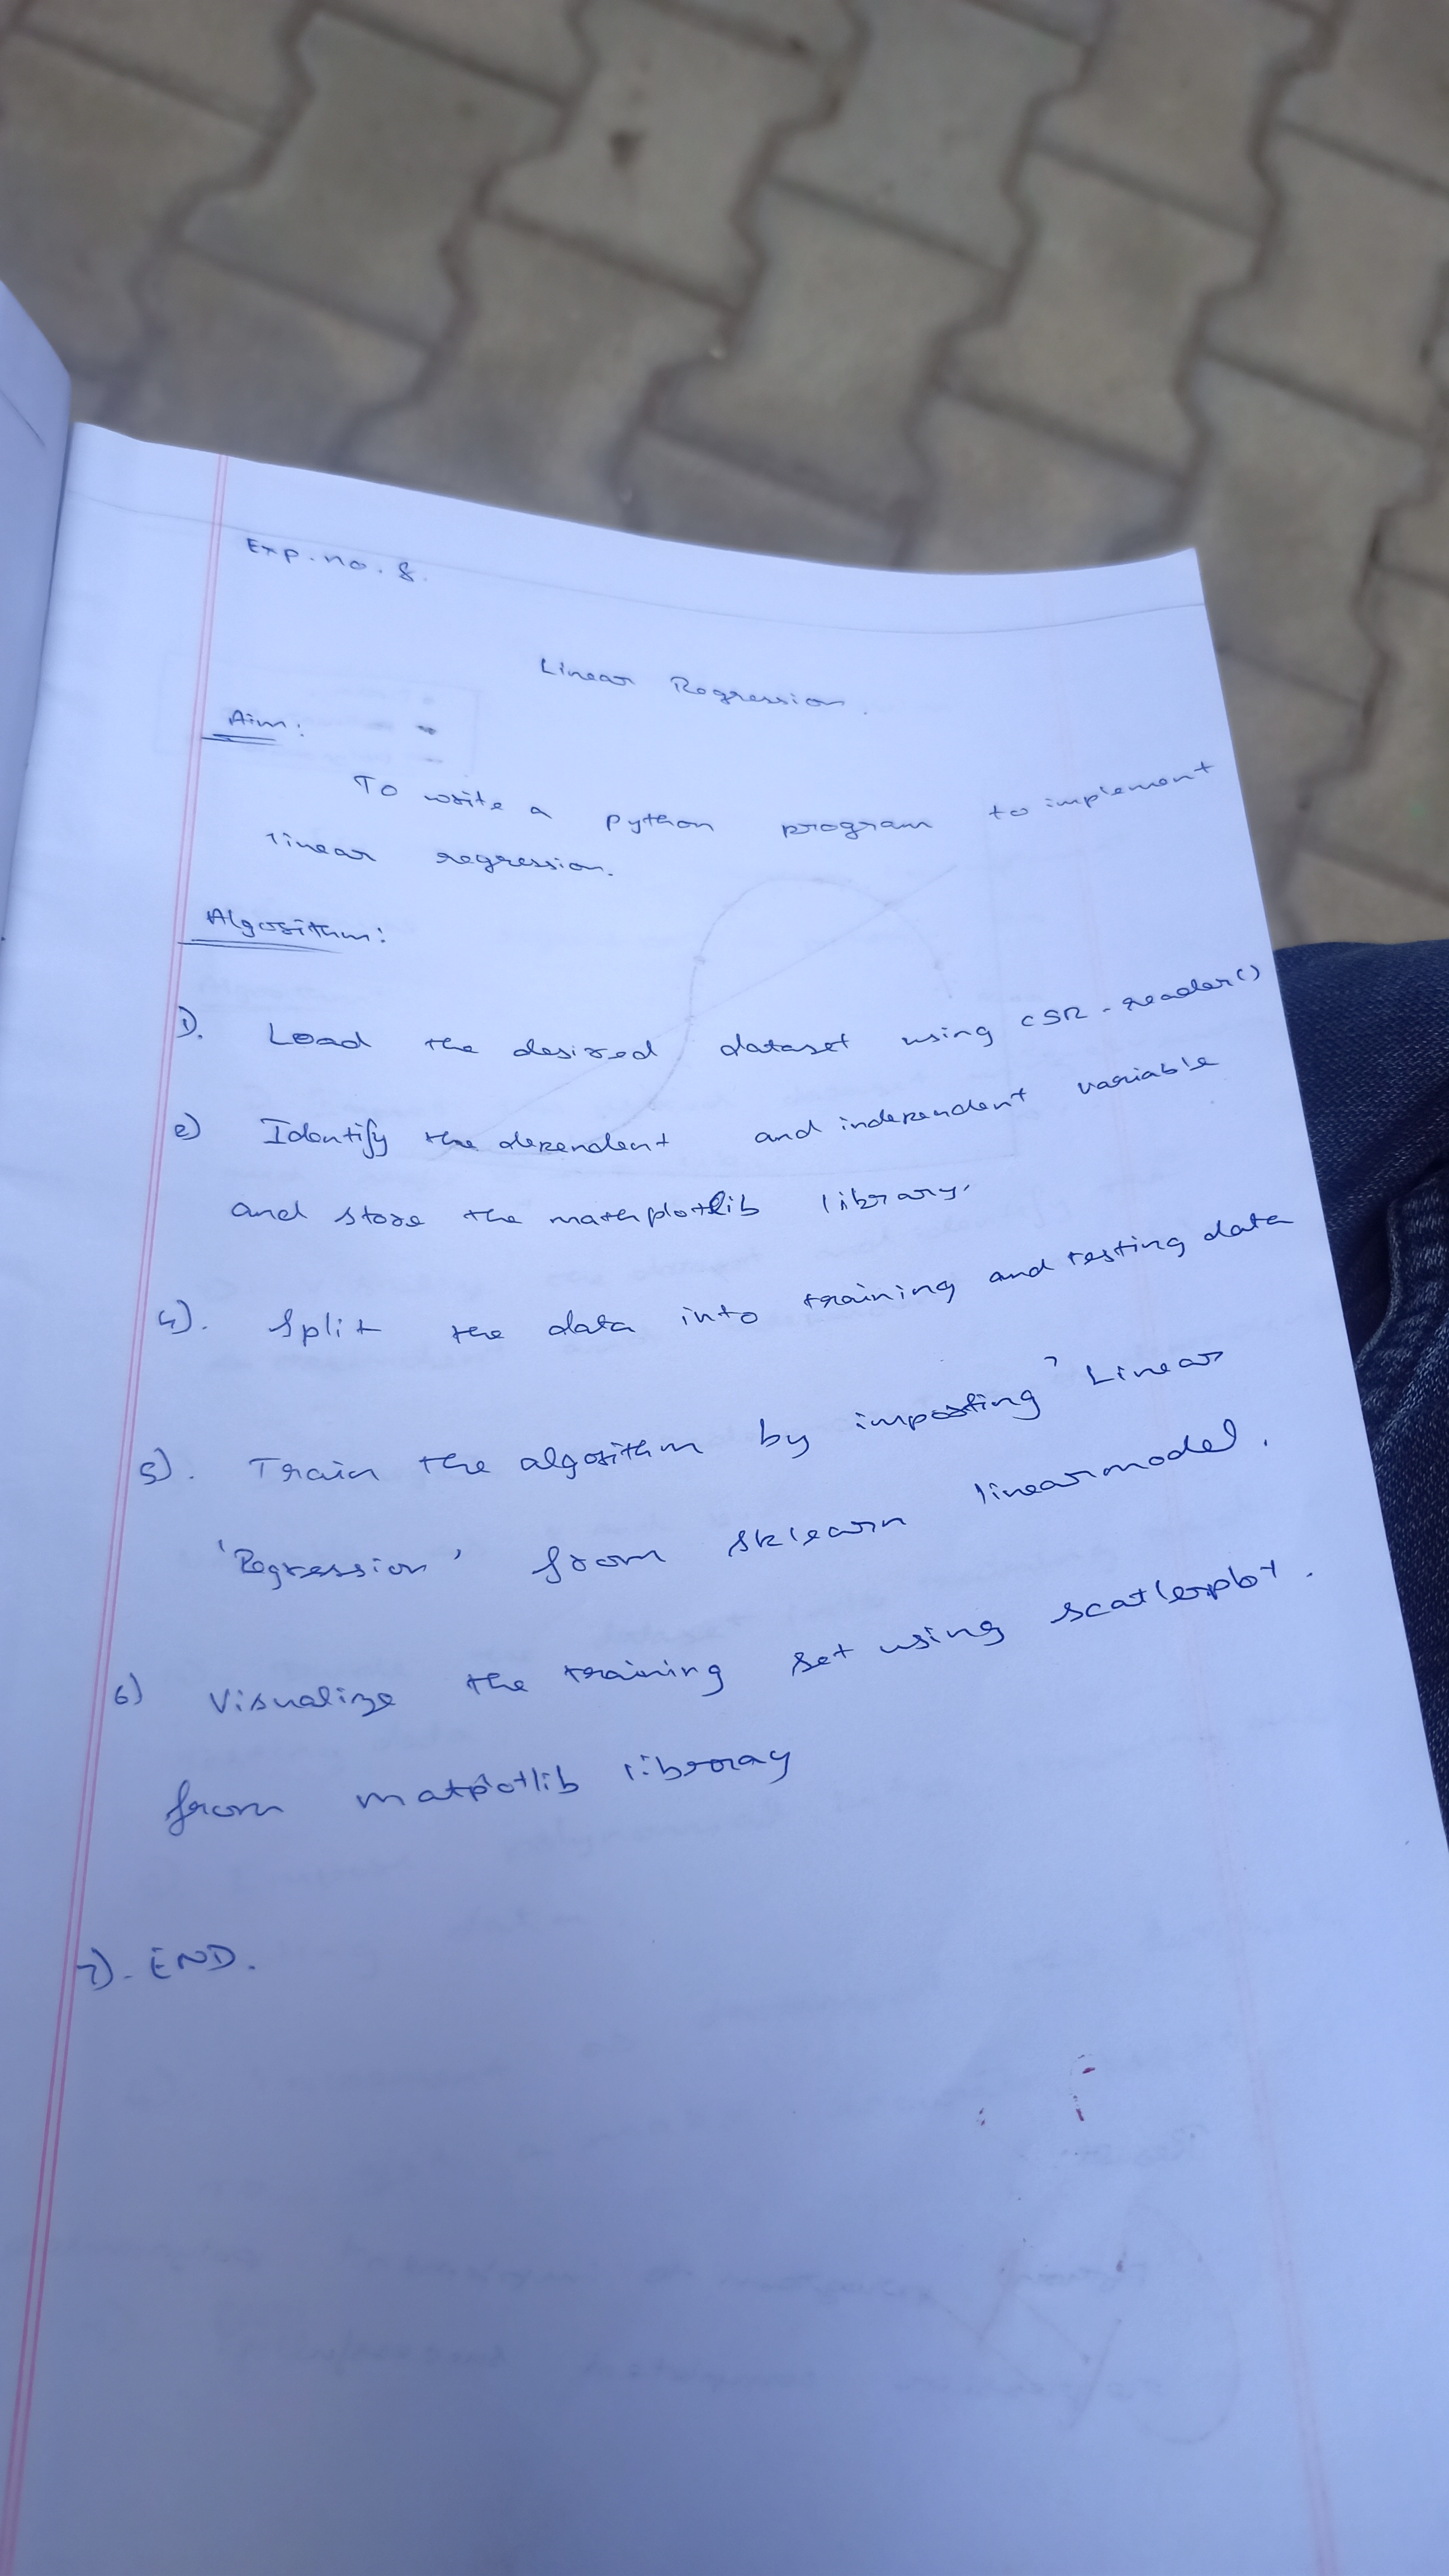 Exp.no.8.
Linear Regression.
Aim:
To write a python program to implement
linear regression.
Algorithm:
1). Load the desired dataset using csr-reader()
2) Identify the dependent and independent variable
and store the mathplotlib library.
4). Split the data into training and testing data
5). Train the algorithm by importing 'Linear
'Regression' from sklearn linearmodel.
6) Visualize the training set using scatterplot.
from matplotlib libroray
7). END.